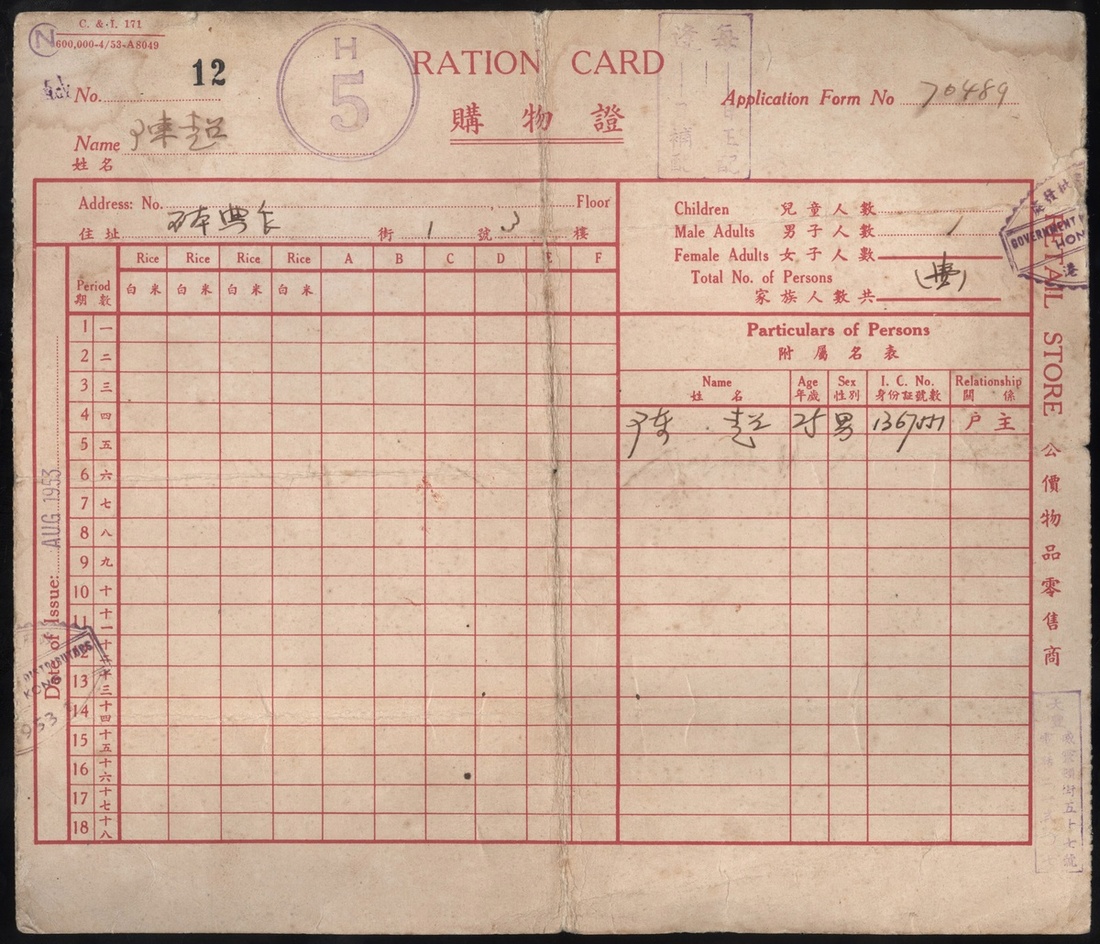 C. & I. 171
N
600,000-4/53-A8049
12
H
5
RATION CARD
No.
Application Form No 70489
購物證
Name 陳超
姓名
Address: No. Floor
住址 街 1 號 3 樓
Children 兒童人數
Male Adults 男子人數 1
Female Adults 女子人數
Total No. of Persons
家族人數共
Rice Rice Rice Rice A B C D E F
Period 白米 白米 白米 白米
期數
Particulars of Persons
附屬名表
Name Age Sex I. C. No. Relationship
姓名 年歲 性別 身份証號數 關係
陳超 25 男 戶主
1 一
2 二
3 三
4 四
5 五
6 六
7 七
8 八
9 九
10 十
11 十一
12 十二
13 十三
14 十四
15 十五
16 十六
17 十七
18 十八
Date of Issue: AUG 1953
DISTRIBUTORS
KONG
953
RETAIL STORE 公價物品零售商
GOVERNMENT
HON
港
街五十七號